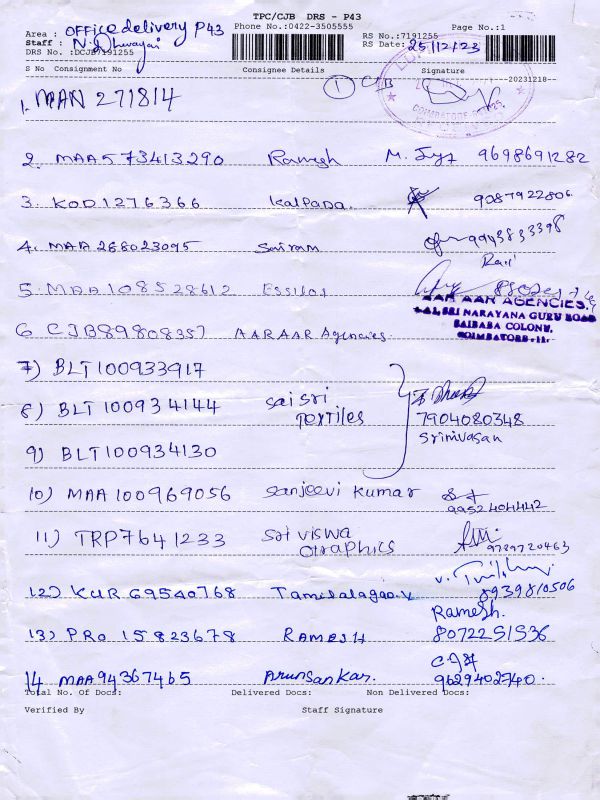 TPC/CJB DRS - P43
Area : Office delivery P43 Phone No.:0422-3505555 Page No.:1
Staff : RS No.:7191255
DRS No. :DCJB7191255 RS Date: 25/12/23
S No Consignment No Consignee Details Signature
20231218
1. MAN 271814 1 CJB
2. MAA573413290 Ramesh 9698691282
3. KOD1276366 Kalpada. 9087922806
4. MAA 268023095 Sairam 9443833398
Ravi
5. MAA108528612 Essilor
AAR AAR AGENCIES,
SRI NARAYANA GURU ROAD
SAIBABA COLONY,
COIMBATORE-11.
6 CJB89808357 AARAAR Agencies.
7) BLT100933917
8) BLT 100934144 sai sri textiles 7904080348
Srinivasan
9) BLT100934130
10) MAA100969056 sanjeevi kumar 9952404442
11) TRP7641233 sri viswa Graphics 9789720463
12) KUR 69540768 Tamilalagan.V 8939810506
13) PRO 15823678 RAMESH Ramesh. 8072251536
14 MAA94367465 Arunsankar. 9629402740.
Total No. Of Docs: Delivered Docs: Non Delivered Docs:
Verified By Staff Signature